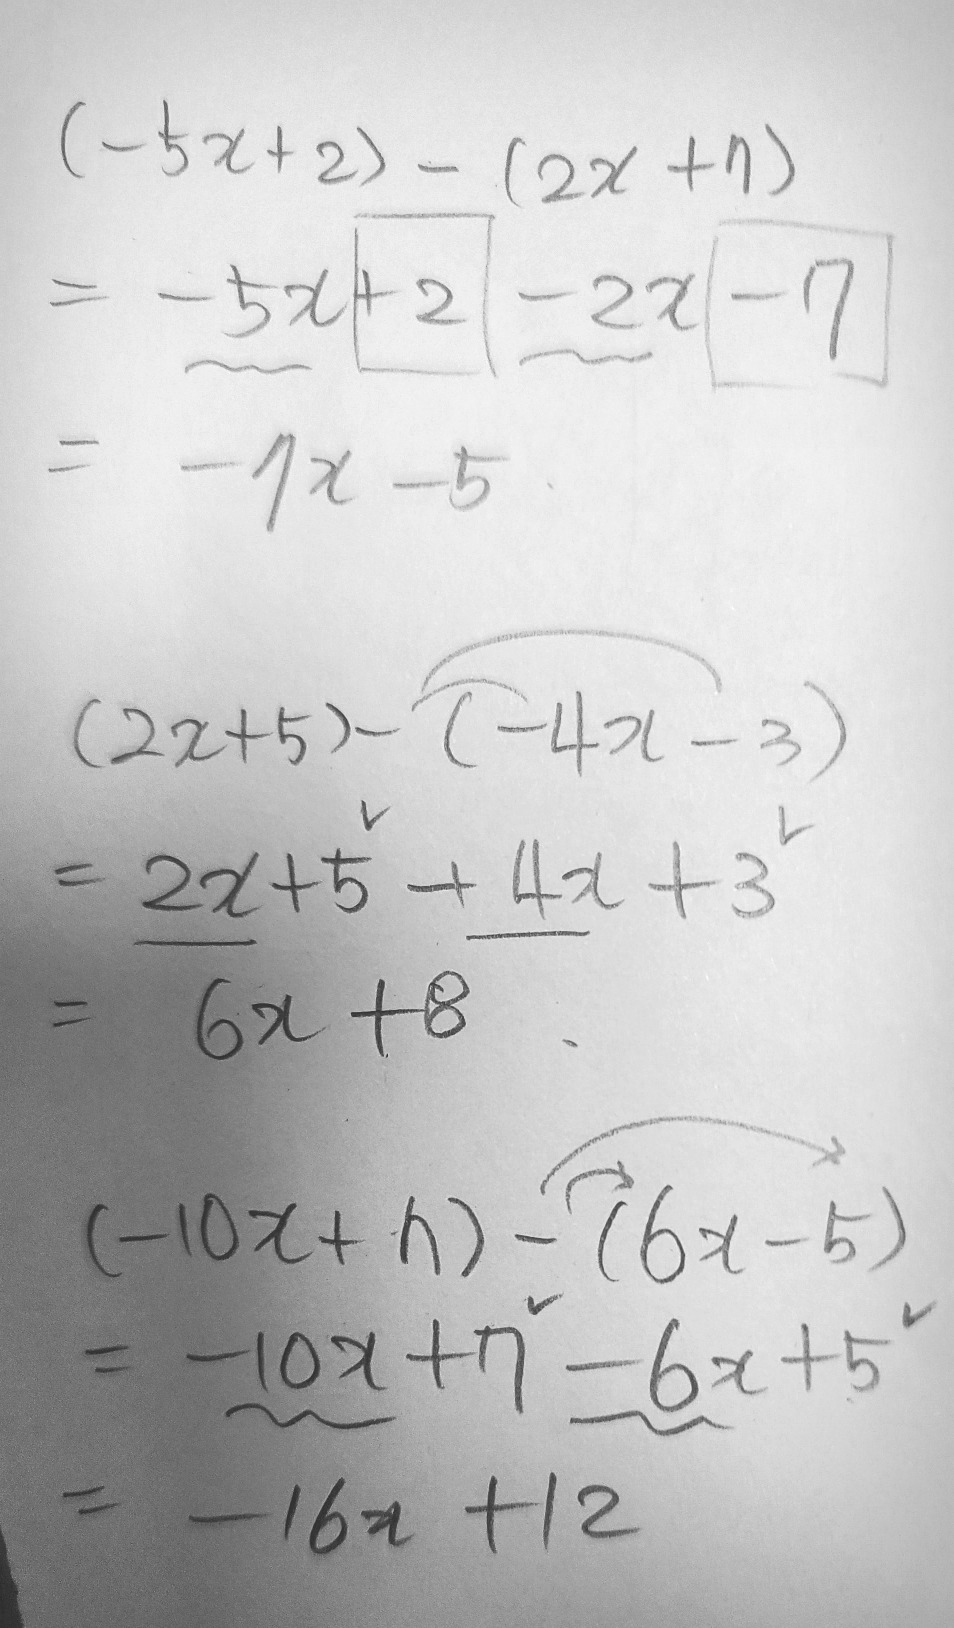 (-5x+2)-(2x+7)
= -5x+2-2x-7
= -7x-5.
(2x+5)-(-4x-3)
= 2x+5+4x+3
= 6x+8.
(-10x+7)-(6x-5)
= -10x+7-6x+5
= -16x+12